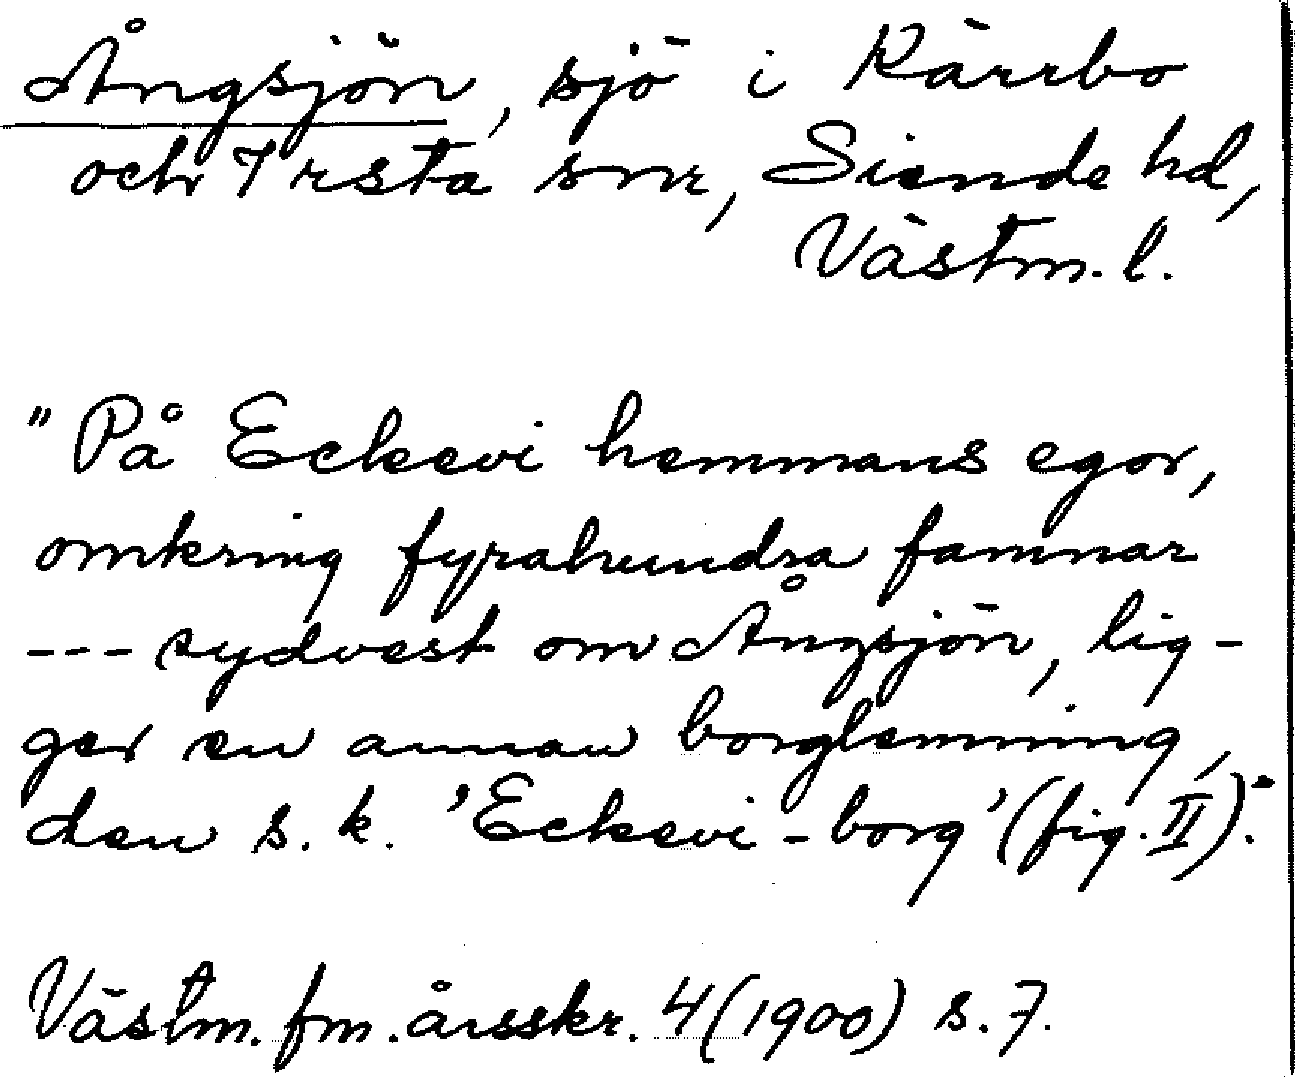 Ångsjön, sjö i Kärrbo
och Irsta snr, Siende hd,
Västm. l.
"På Eckevi hemmans egor,
omkring fyrahundra famnar
--- sydvest om Ångsjön, lig-
ger en annan borglemning,
den s.k. 'Eckevi-borg' (fig. II)."
Västm. fm. årsskr. 4 (1900) s. 7.